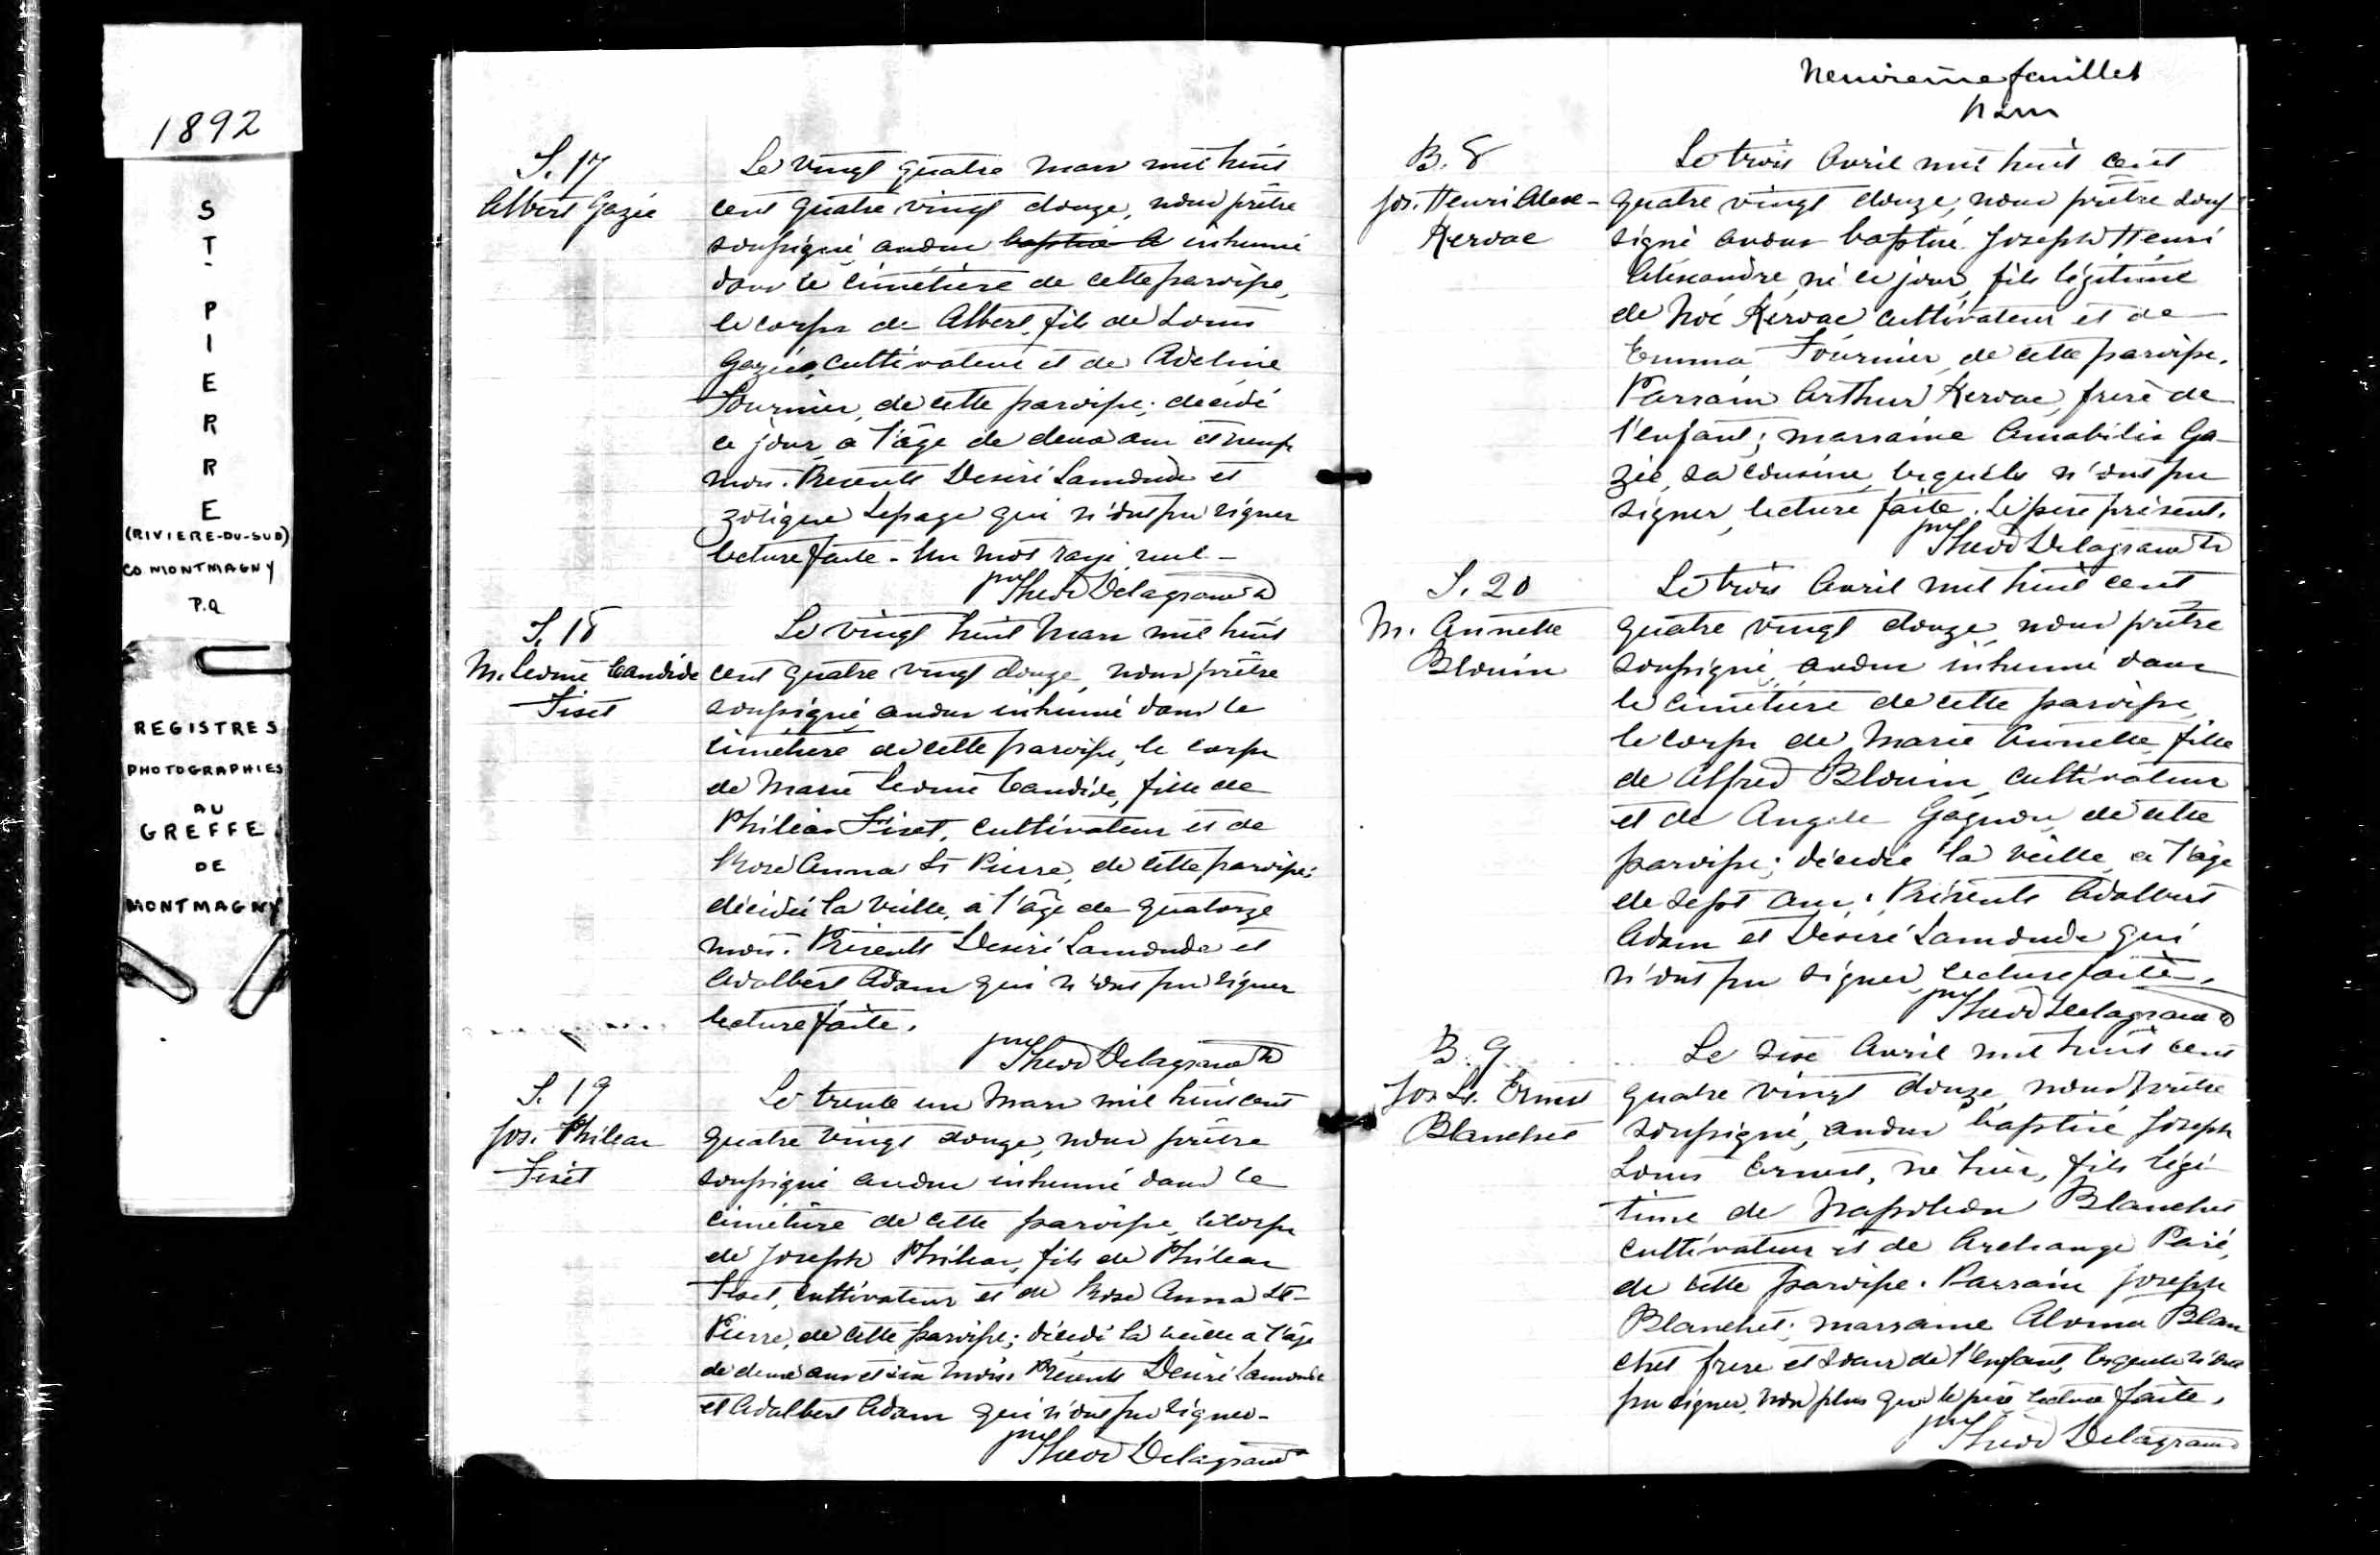 1892
ST-PIERRE
(RIVIERE-DU-SUD)
CO. MONTMAGNY
P.Q
REGISTRES
PHOTOGRAPHIES
AU
GREFFE
DE
MONTMAGNY
S. 17
Albert Gazié
Le vingt quatre Mars mil huit
cent quatre vingt douze, nous prêtre
soussigné avons baptisé a inhumé
dans le cimetière de cette paroisse,
le corps de Albert, fils de Louis
Gazié, cultivateur et de Adeline
Fournier, de cette paroisse; décédé
ce jour, à l'âge de deux ans et neuf
mois. Présents Désiré Lamonde et
Zotique Lepage qui n'ont pu signer
lecture faite - Un mot rayé nul -
Theod Delagrave
S. 18
M. Leonie Candide
Fiset
Le vingt huit Mars mil huit
cent quatre vingt douze, nous prêtre
soussigné avons inhumé dans le
cimetière de cette paroisse, le corps
de Marie Leonie Candide, fille de
Philéas Fiset, cultivateur et de
Rose Anna St Pierre, de cette paroisse;
décédée la veille, à l'âge de quatorze
mois. Présents Désiré Lamonde et
Adalbert Adam qui n'ont pu signer
lecture faite.
ptre Theod Delagrave
S. 19
Jos. Philéas
Fiset
Le trente un Mars mil huit cent
quatre vingt douze, nous prêtre
soussigné avons inhumé dans le
cimetière de cette paroisse, le corps
de Joseph Philéas, fils de Philéas
Fiset, cultivateur et de Rose Anna St-
Pierre, de cette paroisse; décédé la veille à l'âge
de deux ans et six mois. Présents Désiré Lamonde
et Adalbert Adam qui n'ont pu signer -
ptre Theod Delagrave
Neuvieme feuillet
B. 8
Jos. Henri Alex-
Kervac
Le trois Avril mil huit cent
quatre vingt douze, nous prêtre sous-
signé avons baptisé Joseph Henri
Alexandre, né ce jour, fils légitime
de Noé Kervac cultivateur et de
Emma Fournier, de cette paroisse.
Parrain Arthur Kervac, frère de
l'enfant; marraine Amabilis Ga-
zié, sa cousine, lesquels n'ont pu
signer, lecture faite. Le père présent.
ptre Theod Delagrave
S. 20
M. Annette
Blouin
Le trois Avril mil huit cent
quatre vingt douze, nous prêtre
soussigné, avons inhumé dans
le cimetière de cette paroisse,
le corps de Marie Annette, fille
de Alfred Blouin, cultivateur
et de Angèle Gagnon, de cette
paroisse; décédée la veille, à l'âge
de sept ans. Présents Adalbert
Adam et Désiré Lamonde qui
n'ont pu signer, lecture faite.
ptre Theod Delagrave
B. 9
Jos. Ls. Ernest
Blanchet
Le six Avril mil huit cent
quatre vingt douze, nous prêtre
soussigné, avons baptisé Joseph
Louis Ernest, né hier, fils légi-
time de Napoléon Blanchet
cultivateur et de Archange Paré,
de cette paroisse. Parrain Joseph
Blanchet; marraine Aloma Blan
chet frère et sœur de l'enfant, lesquels n'ont
pu signer, non plus que le père, lecture faite.
ptre Theod Delagrave